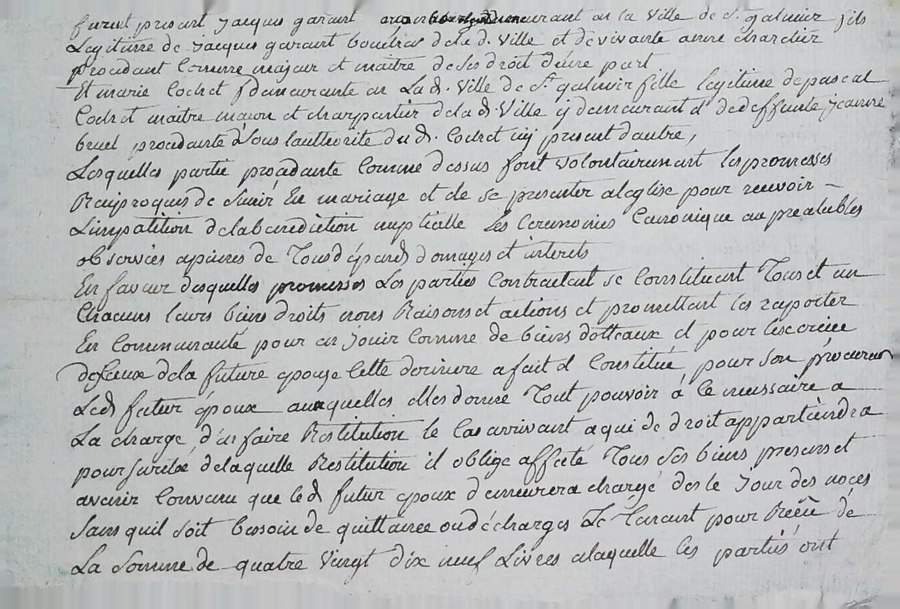 furent present jacques garant demeurant en la Ville de St. galmier fils
Legitime de jacques garant bouché de la d. Ville et de vivante anne chardier
procedant Comme majeur et maitre de ses droit d'une part
Et marie Cochet demeurante en La d. Ville de St. galmier fille legitime de pascal
Cochet maitre maçon et charpantier de la d. Ville y demeurant et de deffunte jeanne
bruel procedante Sous l'authorité du d. Cochet icy present d'autre,
Lesquelles partie procedante Comme dessus font volontairement les promesses
Reciproques de S'unir En mariage et de se presenter a leglise pour recevoir
L'impatition de la benediction nuptialle Les Ceremonies Canonique au prealables
observées a peines de Tous dépends domages et interets
En faveur desquelles promesses Les parties Contractent se Constituent Tous et un
Chacuns leurs biens droits noms Raisons et actions et promettent les raporter
En Communauté pour en jouir Comme de biens dottaux et pour
de Ceux de la future epouse Cette derniere a fait et Constitué pour son procureur
Le d. futur epoux auxquelles elles donne Tout pouvoir à ce necessaire a
La charge d'en faire Restitution le Cas arrivant a qui de droit appartiendra
pour sureté de laquelle Restitution il oblige affecté Tous ses biens presens et
avenir Convenu que le d. futur epoux demeurera chargé des le Jour des noces
Sans quil soit bessoin de quittance ou décharges Le Tenant pour de
La Somme de quatre Vingt dix neuf Livres a laquelle les partiés ont